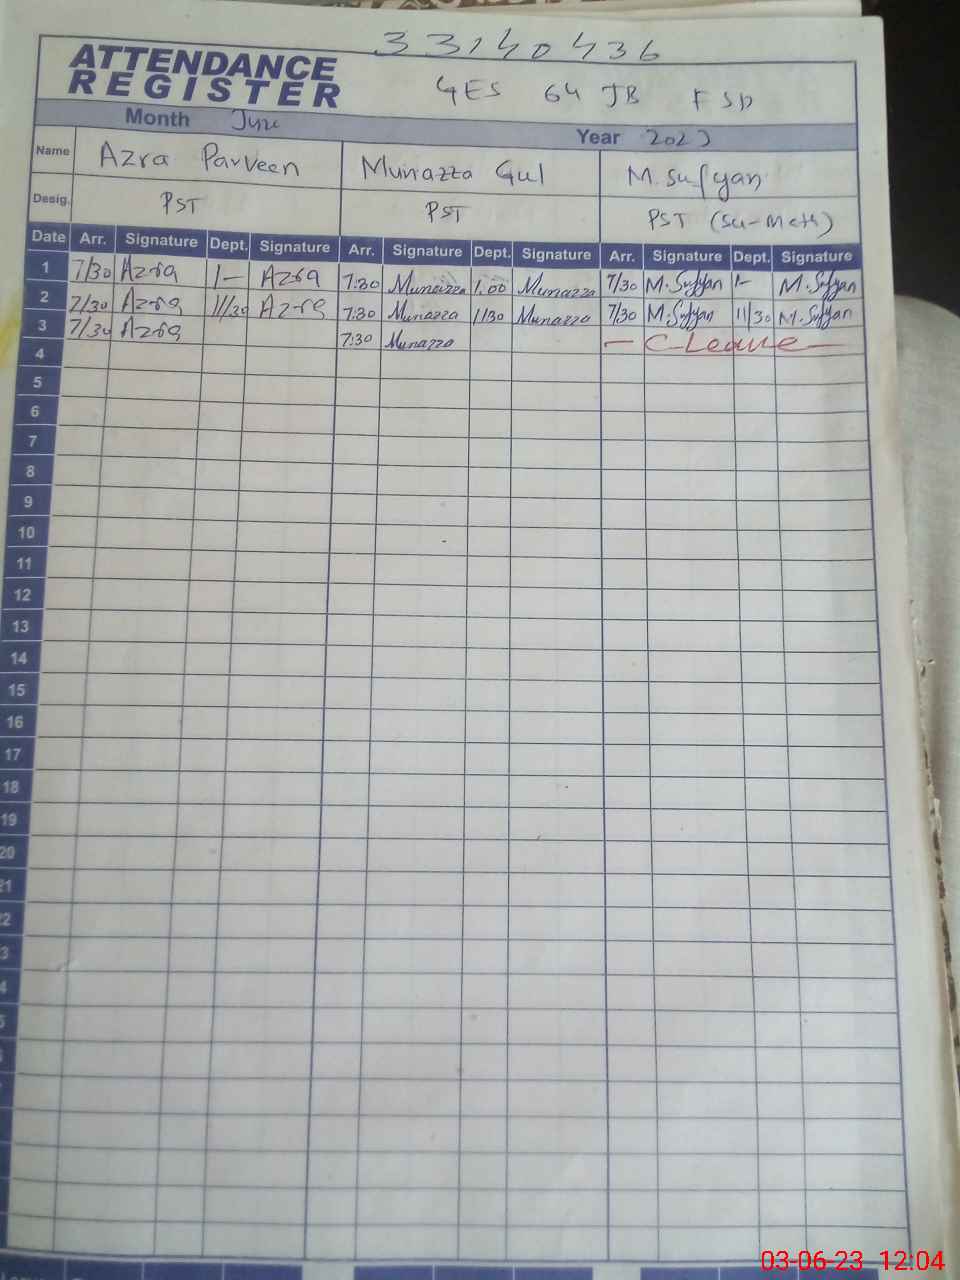 33140436
ATTENDANCE REGISTER
GES 64 JB FSD
Month June Year 2023
Name Azra Parveen Munazza Gul M. Sufyan
Desig. PST PST PST (Sci-Math)
Date Arr. Signature Dept. Signature Arr. Signature Dept. Signature Arr. Signature Dept. Signature
1 7/30 Azra 1- Azra 7:30 Munazza 1:00 Munazza 7/30 M.Sufyan 1- M.Sufyan
2 7/30 Azra 11/30 Azra 7:30 Munazza 1130 Munazza 7/30 M.Sufyan 11/30 M.Sufyan
3 7/30 Azra 7:30 Munazza — C-Leave —
4
5
6
7
8
9
10
11
12
13
14
15
16
17
18
19
20
21
03-06-23 12:04